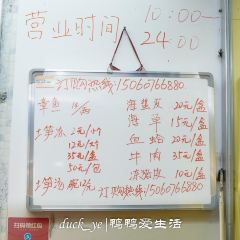 营业时间 10:00—
24:00
订购热线:15060766880
章鱼 10/
海蜇皮 20元/盒
土笋冻 2元/个
海草 15元/盒
12元/大个
血蛤 20元/盒
35元/盒
牛肉 35元/盒
50元/包
10元/盒
土笋汤
订购热线15060766880
扫码领红包
duck_ye|鸭鸭爱生活